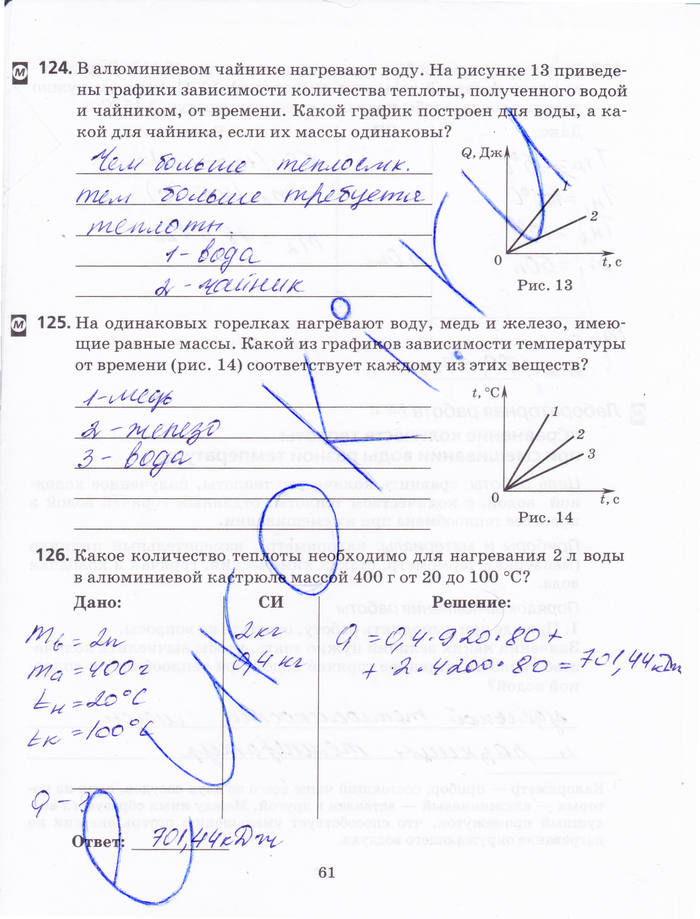 М 124. В алюминиевом чайнике нагревают воду. На рисунке 13 приведе-
ны графики зависимости количества теплоты, полученного водой
и чайником, от времени. Какой график построен для воды, а ка-
кой для чайника, если их массы одинаковы?
Чем больше теплоемк.
тем больше требуется
теплоты.
1 - вода
2 - чайник
Q, Дж
1
2
0
t, с
Рис. 13
М 125. На одинаковых горелках нагревают воду, медь и железо, имею-
щие равные массы. Какой из графиков зависимости температуры
от времени (рис. 14) соответствует каждому из этих веществ?
1-медь
2 - железо
3 - вода
t, °C
1
2
3
0
t, с
Рис. 14
126. Какое количество теплоты необходимо для нагревания 2 л воды
в алюминиевой кастрюле массой 400 г от 20 до 100 °C?
Дано: СИ Решение:
mв = 2л 2кг Q = 0,4·920·80+
mа = 400г 0,4 кг +2·4200·80 = 701,44кДж
tн = 20°C
tк = 100°C
Q - ?
Ответ: 701,44кДж
61